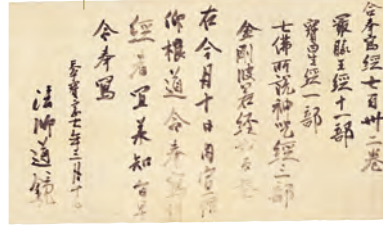 合奉寫經七百卅二卷
最勝王經十一部
寶星經一部
七佛所說神咒經三部
金剛般若經
右今月十日內宣
師根道令奉寫
經者宜承知
令奉寫
天平寶字七年三月十日
法師道鏡